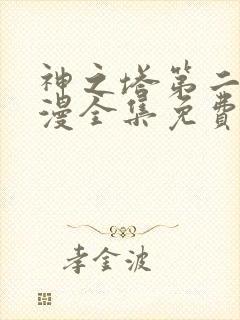 神之塔第二
漫全集免費
李金波